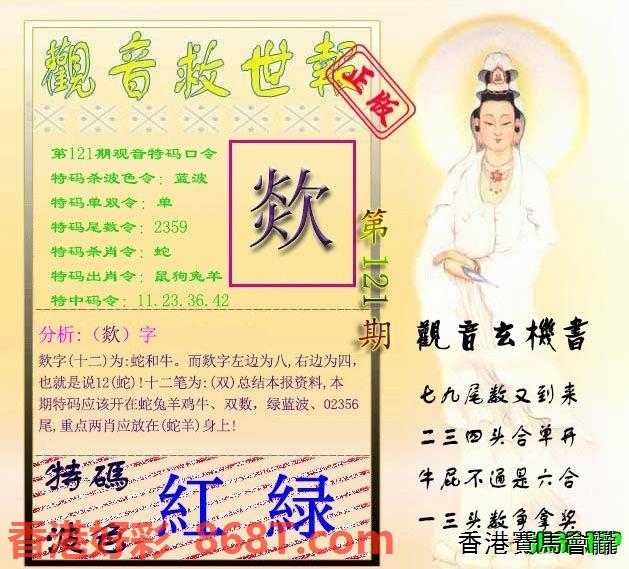 觀音救世報
正版
第121期观音特码口令
特码杀波色令：蓝波
特码单双令：单
特码尾数令：2359
特码杀肖令：蛇
特码出肖令：鼠狗兔羊
特中码令：11.23.36.42
欻
第121期
分析:（欻）字
欻字(十二)为:蛇和牛。而欻字左边为八,右边为四,
也就是说12(蛇)!十二笔为:(双)总结本报资料,本
期特码应该开在蛇兔羊鸡牛、双数，绿蓝波、02356
尾,重点两肖应放在(蛇羊)身上!
特碼
波色
紅 绿
觀音玄機書
七九尾数又到来
二三四头合单开
牛屁不通是六合
一三头数争拿奖
香港好彩 868T.com
香港賽馬會